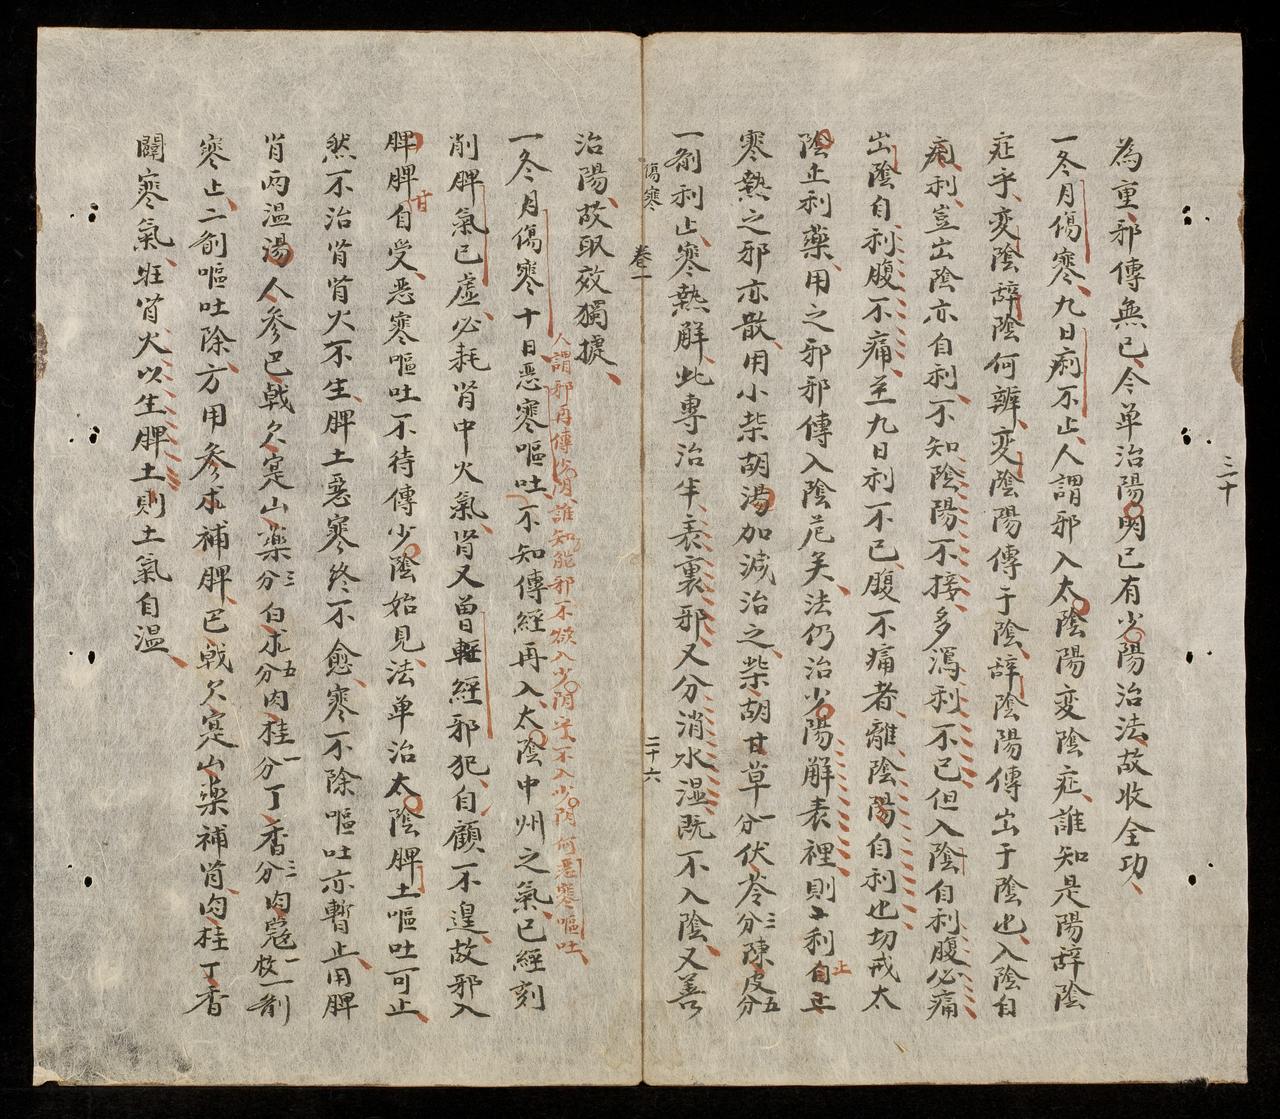 三十
為重邪傳無已今单治陽明已有少陽治法故收全功
一冬月傷寒九日痢不止人謂邪入太陰陽变陰症誰知是陽辞陰
症乎变陰辞陰何辨变陰陽傳于陰辞陰陽傳出于陰也入陰自
痢利豈出陰亦自利不知陰陽不接多瀉利不已但入陰自利腹必痛
出陰自利腹不痛至九日利不已腹不痛者離陰陽自利也切戒太
陰止利藥用之邪邪傳入陰危矣法仍治少陽解表裡則利自止
止
寒熱之邪亦散用小柴胡湯加減治之柴胡甘草一分伏苓三分陳皮五分
一剤利止寒熱解此專治半表裏邪又分消水湿既不入陰又善
傷寒
卷一
二十六
治陽故取效獨捷
人謂邪再傳少陰誰知能邪不欲入少陰若不入少陰何悪寒嘔吐
一冬月傷寒十日悪寒嘔吐不知傳經再入太陰中州之氣已經刻
削脾氣已虚必耗肾中火氣肾又曽輕經邪犯自顧不遑故邪入
脾脾自受悪寒嘔吐不待傳少陰始見法单治太陰脾土嘔吐可止
甘
然不治肾肾火不生脾土悪寒终不愈寒不除嘔吐亦暫止用脾
肾两温湯人参巴戟欠寔山藥三分白朮五分肉桂一分丁香三分肉寇一枚一剤
寒止二剤嘔吐除方用参朮補脾巴戟欠寔山藥補肾肉桂丁香
闢寒氣旺肾火以生脾土則土氣自温